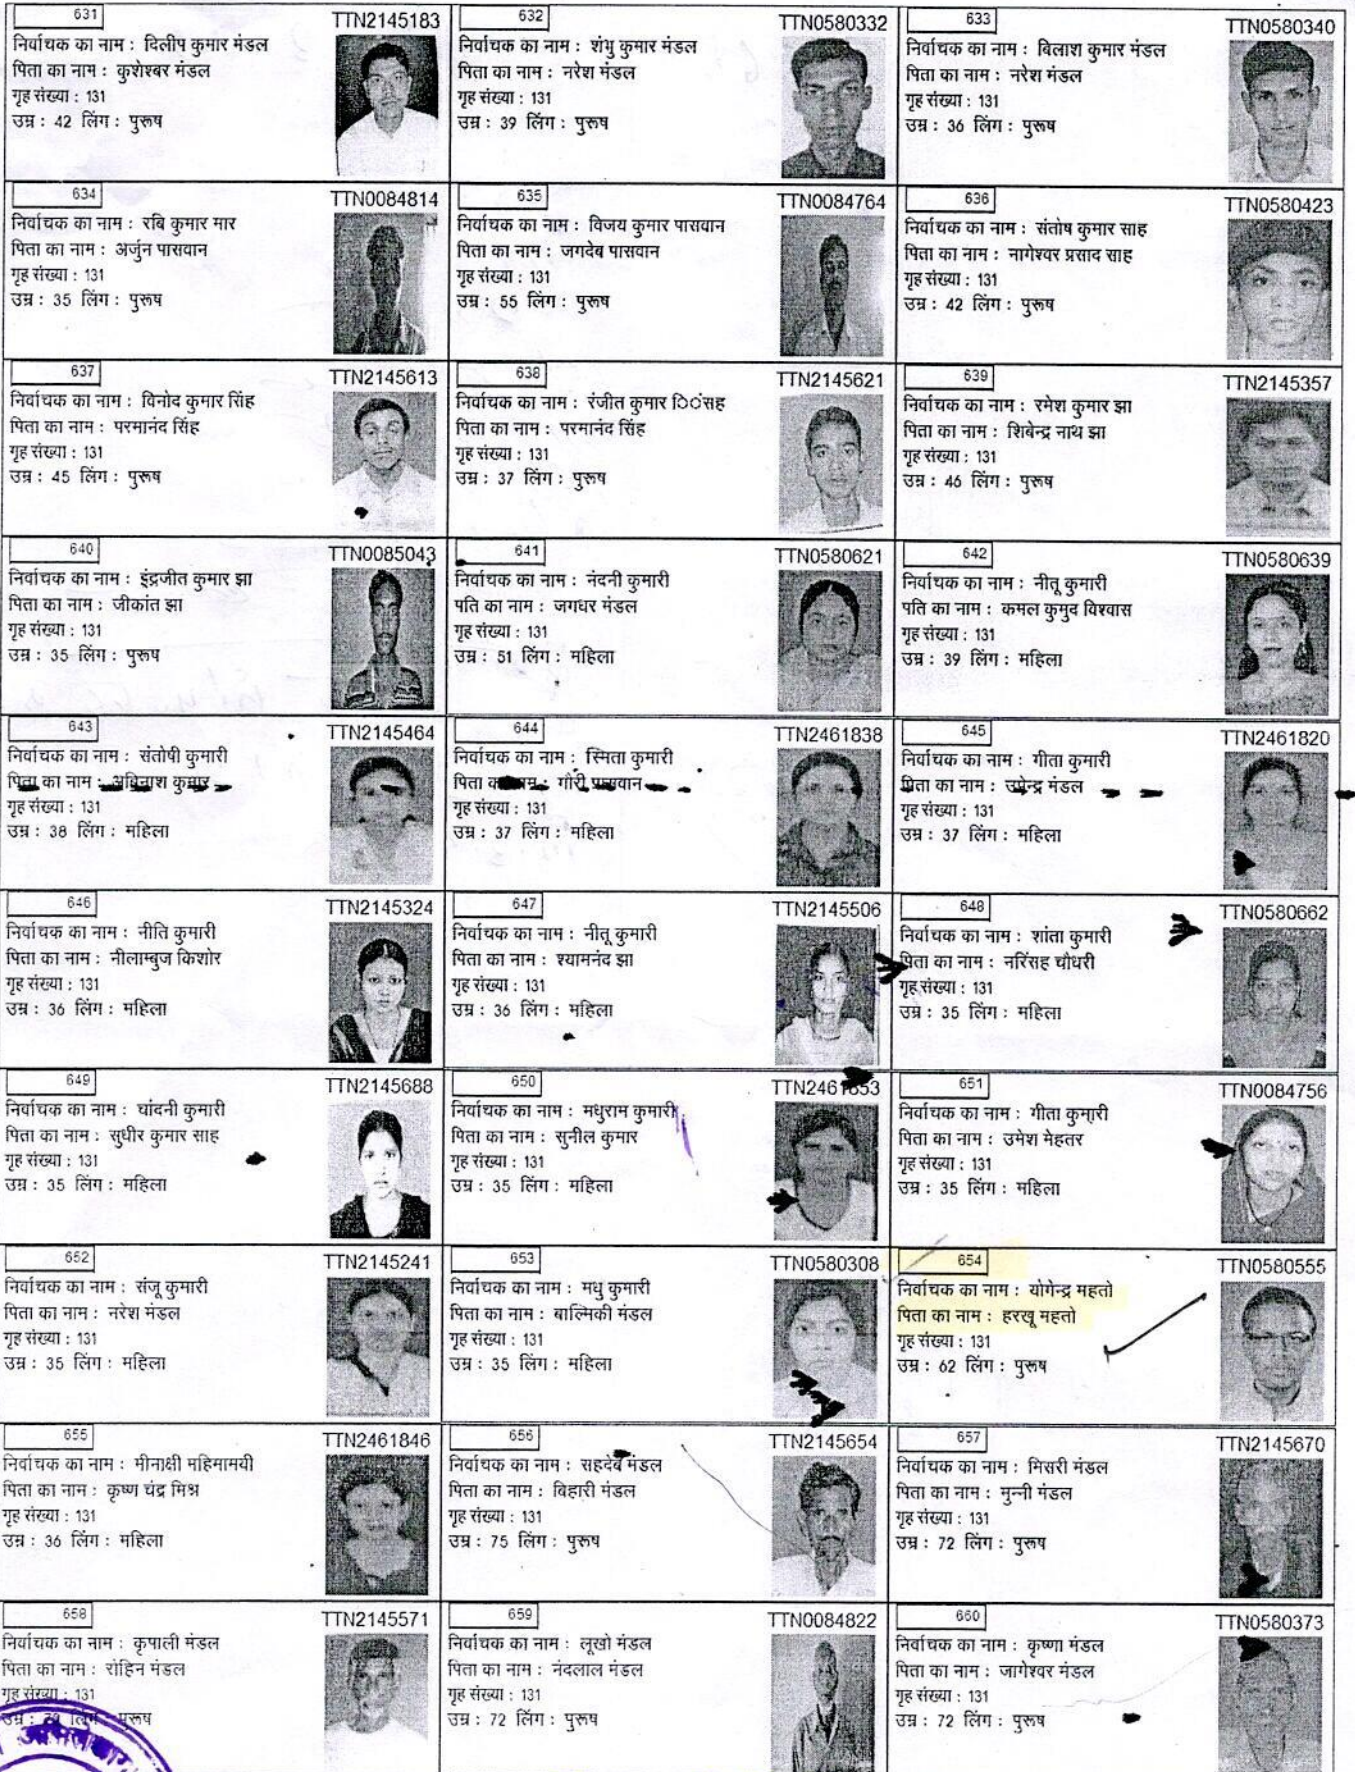 631
TTN2145183
निर्वाचक का नाम : दिलीप कुमार मंडल
पिता का नाम : कुशेश्बर मंडल
गृह संख्या : 131
उम्र : 42 लिंग : पुरूष
632
TTN0580332
निर्वाचक का नाम : शंभु कुमार मंडल
पिता का नाम : नरेश मंडल
गृह संख्या : 131
उम्र : 39 लिंग : पुरूष
633
TTN0580340
निर्वाचक का नाम : बिलाश कुमार मंडल
पिता का नाम : नरेश मंडल
गृह संख्या : 131
उम्र : 36 लिंग : पुरूष
634
TTN0084814
निर्वाचक का नाम : रबि कुमार मार
पिता का नाम : अर्जुन पासवान
गृह संख्या : 131
उम्र : 35 लिंग : पुरूष
635
TTN0084764
निर्वाचक का नाम : विजय कुमार पासवान
पिता का नाम : जगदेब पासवान
गृह संख्या : 131
उम्र : 55 लिंग : पुरूष
636
TTN0580423
निर्वाचक का नाम : संतोष कुमार साह
पिता का नाम : नागेश्वर प्रसाद साह
गृह संख्या : 131
उम्र : 42 लिंग : पुरूष
637
TTN2145613
निर्वाचक का नाम : विनोद कुमार सिंह
पिता का नाम : परमानंद सिंह
गृह संख्या : 131
उम्र : 45 लिंग : पुरूष
638
TTN2145621
निर्वाचक का नाम : रंजीत कुमार िंसह
पिता का नाम : परमानंद सिंह
गृह संख्या : 131
उम्र : 37 लिंग : पुरूष
639
TTN2145357
निर्वाचक का नाम : रमेश कुमार झा
पिता का नाम : शिबेन्द्र नाथ झा
गृह संख्या : 131
उम्र : 46 लिंग : पुरूष
640
TTN0085043
निर्वाचक का नाम : इंद्रजीत कुमार झा
पिता का नाम : जीकांत झा
गृह संख्या : 131
उम्र : 35 लिंग : पुरूष
641
TTN0580621
निर्वाचक का नाम : नंदनी कुमारी
पति का नाम : जगधर मंडल
गृह संख्या : 131
उम्र : 51 लिंग : महिला
642
TTN0580639
निर्वाचक का नाम : नीतू कुमारी
पति का नाम : कमल कुमुद विश्वास
गृह संख्या : 131
उम्र : 39 लिंग : महिला
643
TTN2145464
निर्वाचक का नाम : संतोषी कुमारी
पिता का नाम : अविनाश कुमार
गृह संख्या : 131
उम्र : 38 लिंग : महिला
644
TTN2461838
निर्वाचक का नाम : स्मिता कुमारी
पिता का नाम : गौरी पासवान
गृह संख्या : 131
उम्र : 37 लिंग : महिला
645
TTN2461820
निर्वाचक का नाम : गीता कुमारी
पिता का नाम : उपेन्द्र मंडल
गृह संख्या : 131
उम्र : 37 लिंग : महिला
646
TTN2145324
निर्वाचक का नाम : नीति कुमारी
पिता का नाम : नीलाम्बुज किशोर
गृह संख्या : 131
उम्र : 36 लिंग : महिला
647
TTN2145506
निर्वाचक का नाम : नीतू कुमारी
पिता का नाम : श्यामनंद झा
गृह संख्या : 131
उम्र : 36 लिंग : महिला
648
TTN0580662
निर्वाचक का नाम : शांता कुमारी
पिता का नाम : नरिंसह चौधरी
गृह संख्या : 131
उम्र : 35 लिंग : महिला
649
TTN2145688
निर्वाचक का नाम : चांदनी कुमारी
पिता का नाम : सुधीर कुमार साह
गृह संख्या : 131
उम्र : 35 लिंग : महिला
650
TTN2461853
निर्वाचक का नाम : मधुराम कुमारी
पिता का नाम : सुनील कुमार
गृह संख्या : 131
उम्र : 35 लिंग : महिला
651
TTN0084756
निर्वाचक का नाम : गीता कुमारी
पिता का नाम : उमेश मेहतर
गृह संख्या : 131
उम्र : 35 लिंग : महिला
652
TTN2145241
निर्वाचक का नाम : संजू कुमारी
पिता का नाम : नरेश मंडल
गृह संख्या : 131
उम्र : 35 लिंग : महिला
653
TTN0580308
निर्वाचक का नाम : मधु कुमारी
पिता का नाम : बाल्मिकी मंडल
गृह संख्या : 131
उम्र : 35 लिंग : महिला
654
TTN0580555
निर्वाचक का नाम : योगेन्द्र महतो
पिता का नाम : हरखू महतो
गृह संख्या : 131
उम्र : 62 लिंग : पुरूष
655
TTN2461846
निर्वाचक का नाम : मीनाक्षी महिमामयी
पिता का नाम : कृष्ण चंद्र मिश्र
गृह संख्या : 131
उम्र : 36 लिंग : महिला
656
TTN2145654
निर्वाचक का नाम : सहदेब मंडल
पिता का नाम : बिहारी मंडल
गृह संख्या : 131
उम्र : 75 लिंग : पुरूष
657
TTN2145670
निर्वाचक का नाम : मिसरी मंडल
पिता का नाम : मुन्नी मंडल
गृह संख्या : 131
उम्र : 72 लिंग : पुरूष
658
TTN2145571
निर्वाचक का नाम : कृपाली मंडल
पिता का नाम : रोहिन मंडल
गृह संख्या : 131
उम्र : लिंग : पुरूष
659
TTN0084822
निर्वाचक का नाम : लूखो मंडल
पिता का नाम : नंदलाल मंडल
गृह संख्या : 131
उम्र : 72 लिंग : पुरूष
660
TTN0580373
निर्वाचक का नाम : कृष्णा मंडल
पिता का नाम : जागेश्वर मंडल
गृह संख्या : 131
उम्र : 72 लिंग : पुरूष